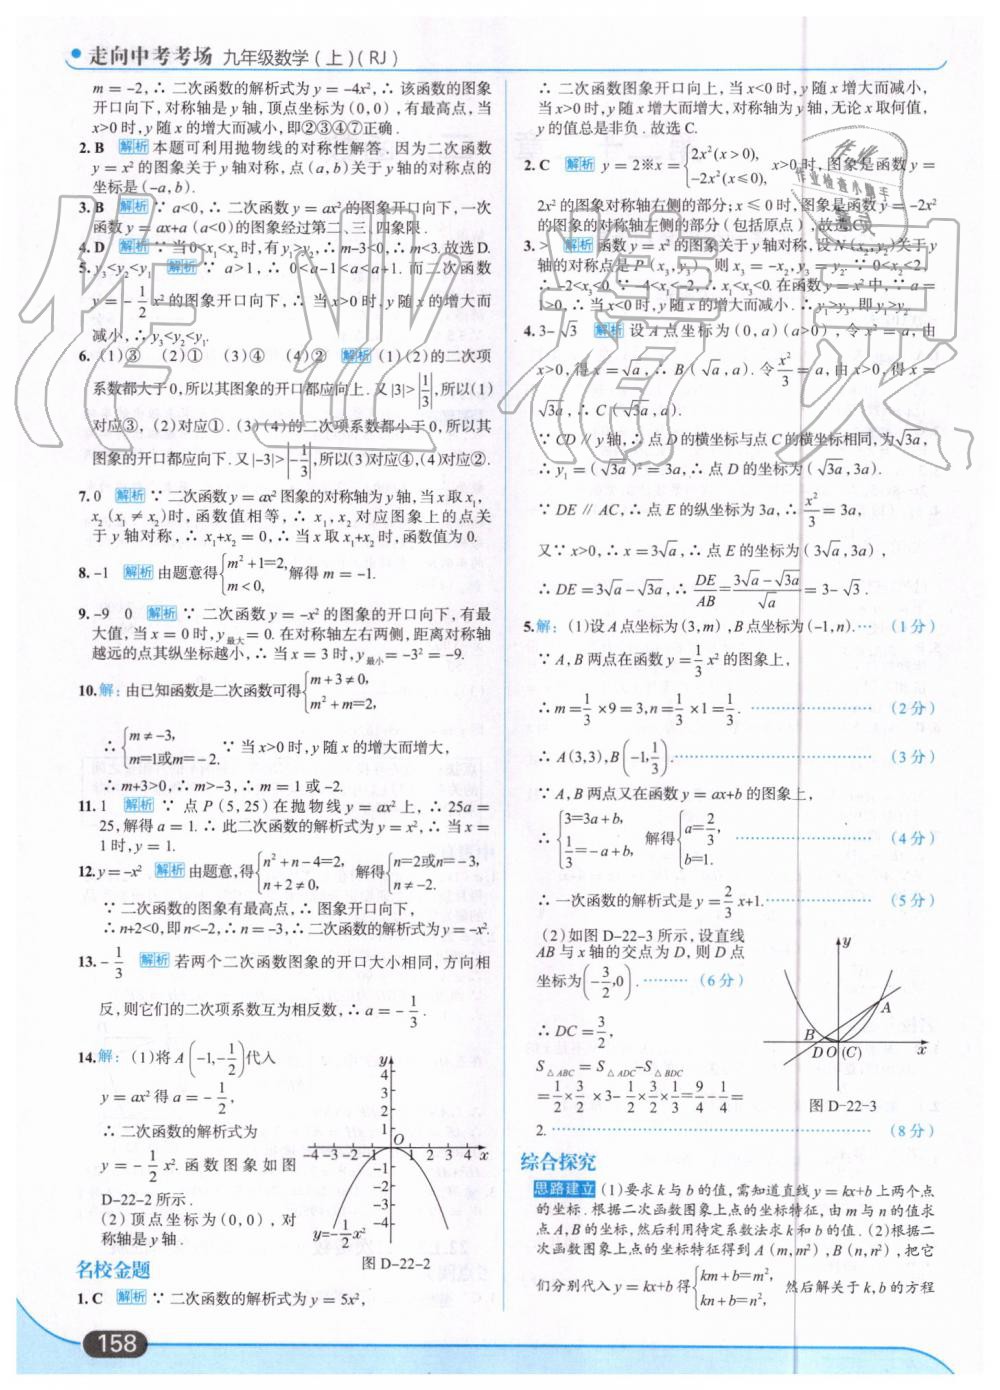 走向中考考场 九年级数学(上)(RJ)
m=-2,∴ 二次函数的解析式为y=-4x²,∴ 该函数的图象
开口向下,对称轴是y轴,顶点坐标为(0,0),有最高点,当
x>0时,y随x的增大而减小,即②③④⑦正确.
2. B 解析 本题可利用抛物线的对称性解答.因为二次函数
y=x²的图象关于y轴对称,点(a,b)关于y轴的对称点的
坐标是(-a,b).
3. B 解析 ∵ a<0,∴ 二次函数y=ax²的图象开口向下,一次
函数y=ax+a(a<0)的图象经过第二、三、四象限.
4. D 解析 ∵ 当0<x₁<x₂时,有y₁>y₂,∴ m-3<0,∴ m<3.故选D.
5. y₃<y₂<y₁ 解析 ∵ a>1,∴ 0<a-1<a<a+1.而二次函数
y=-1/2x²的图象开口向下,∴ 当x>0时,y随x的增大而
减小,∴ y₃<y₂<y₁.
6. (1)③ (2)① (3)④ (4)② 解析 (1)(2)的二次项
系数都大于0,所以其图象的开口都应向上.又|3|>|1/3|,所以(1)
对应③,(2)对应①.(3)(4)的二次项系数都小于0,所以其
图象的开口都应向下.又|-3|>|-1/3|,所以(3)对应④,(4)对应②.
7. 0 解析 ∵ 二次函数y=ax²图象的对称轴为y轴,当x取x₁,
x₂(x₁≠x₂)时,函数值相等,∴ x₁,x₂对应图象上的点关
于y轴对称,∴ x₁+x₂=0,∴ 当x取x₁+x₂时,函数值为0.
8. -1 解析 由题意得{m²+1=2, m<0,解得m=-1.
9. -9 0 解析 ∵ 二次函数y=-x²的图象的开口向下,有最
大值,当x=0时,y最大=0.在对称轴左右两侧,距离对称轴
越远的点其纵坐标越小,∴ 当x=3时,y最小=-3²=-9.
10. 解:由已知函数是二次函数可得{m+3≠0, m²+m=2,
∴ {m≠-3, m=1或m=-2. ∵ 当x>0时,y随x的增大而增大,
∴ m+3>0,∴ m>-3,∴ m=1或-2.
11. 1 解析 ∵ 点P(5,25)在抛物线y=ax²上,∴ 25a=
25,解得a=1.∴ 此二次函数的解析式为y=x²,∴ 当x=
1时,y=1.
12. y=-x² 解析 由题意,得{n²+n-4=2, n+2≠0, 解得{n=2或n=-3, n≠-2.
∵ 二次函数的图象有最高点,∴ 图象开口向下,
∴ n+2<0,即n<-2,∴ n=-3,∴ 二次函数的解析式为y=-x².
13. -1/3 解析 若两个二次函数图象的开口大小相同,方向相
反,则它们的二次项系数互为相反数,∴ a=-1/3.
14. 解:(1)将A(-1,-1/2)代入
y=ax²得a=-1/2,
∴ 二次函数的解析式为
y=-1/2x².函数图象如图
D-22-2所示.
(2)顶点坐标为(0,0),对
称轴是y轴.
y
4
3
2
1
O
-4 -3 -2 -1 1 2 3 4 x
-1
-2
-3
-4
y=-1/2x²
图 D-22-2
名校金题
1. C 解析 ∵ 二次函数的解析式为y=5x²,
158
∴ 二次函数图象开口向上,当x<0时,y随x的增大而减小,
当x>0时,y随x的增大而增大,对称轴为y轴,无论x取何值,
y的值总是非负.故选C.
2. C 解析 y=2※x={2x²(x>0), -2x²(x≤0), x>0时,图象是函数y=
2x²的图象对称轴右侧的部分;x≤0时,图象是函数y=-2x²
的图象的对称轴左侧的部分(包括原点),故选C.
3. > 解析 函数y=x²的图象关于y轴对称,设N(x₂,y₂)关于y
轴的对称点是P(x₃,y₃),则x₃=-x₂,y₃=y₂.∵ 0<x₂<2,
∴ -2<x₃<0.∵ -4<x₁<-2,∴ x₁<x₃<0.在函数y=x²中,∵ a=
1>0,∴ 当x<0时,y随x的增大而减小.∴ y₁>y₃,即y₁>y₂.
4. 3-√3 解析 设A点坐标为(0,a)(a>0),令x²=a,由
x>0,得x=√a,∴ B(√a,a).令x²/3=a,由x>0,得x=
√3a,∴ C(√3a,a).
∵ CD∥y轴,∴ 点D的横坐标与点C的横坐标相同,为√3a,
∴ y₁=(√3a)²=3a,∴ 点D的坐标为(√3a,3a).
∵ DE∥AC,∴ 点E的纵坐标为3a,∴ x²/3=3a,
又∵ x>0,∴ x=3√a,∴ 点E的坐标为(3√a,3a),
∴ DE=3√a-√3a,∴ DE/AB=(3√a-√3a)/√a=3-√3.
5. 解:(1)设A点坐标为(3,m),B点坐标为(-1,n).… (1分)
∵ A,B两点在函数y=1/3x²的图象上,
∴ m=1/3×9=3,n=1/3×1=1/3.………… (2分)
∴ A(3,3),B(-1,1/3).………… (3分)
∵ A,B两点又在函数y=ax+b的图象上,
∴ {3=3a+b, 1/3=-a+b, 解得{a=2/3, b=1. ………… (4分)
∴ 一次函数的解析式是y=2/3x+1.………… (5分)
(2)如图D-22-3所示,设直线
AB与x轴的交点为D,则D点
坐标为(-3/2,0).……… (6分)
∴ DC=3/2,
S△ABC=S△ADC-S△BDC
=1/2×3/2×3-1/2×3/2×1/3=9/4-1/4=
2.………… (8分)
y
A
B
D O (C) x
图 D-22-3
综合探究
思路建立 (1)要求k与b的值,需知道直线y=kx+b上两个点
的坐标.根据二次函数图象上点的坐标特征,由m与n的值求
点A,B的坐标,然后利用待定系数法求k和b的值.(2)根据二
次函数图象上点的坐标特征得到A(m,m²),B(n,n²),把它
们分别代入y=kx+b得{km+b=m², kn+b=n², 然后解关于k,b的方程